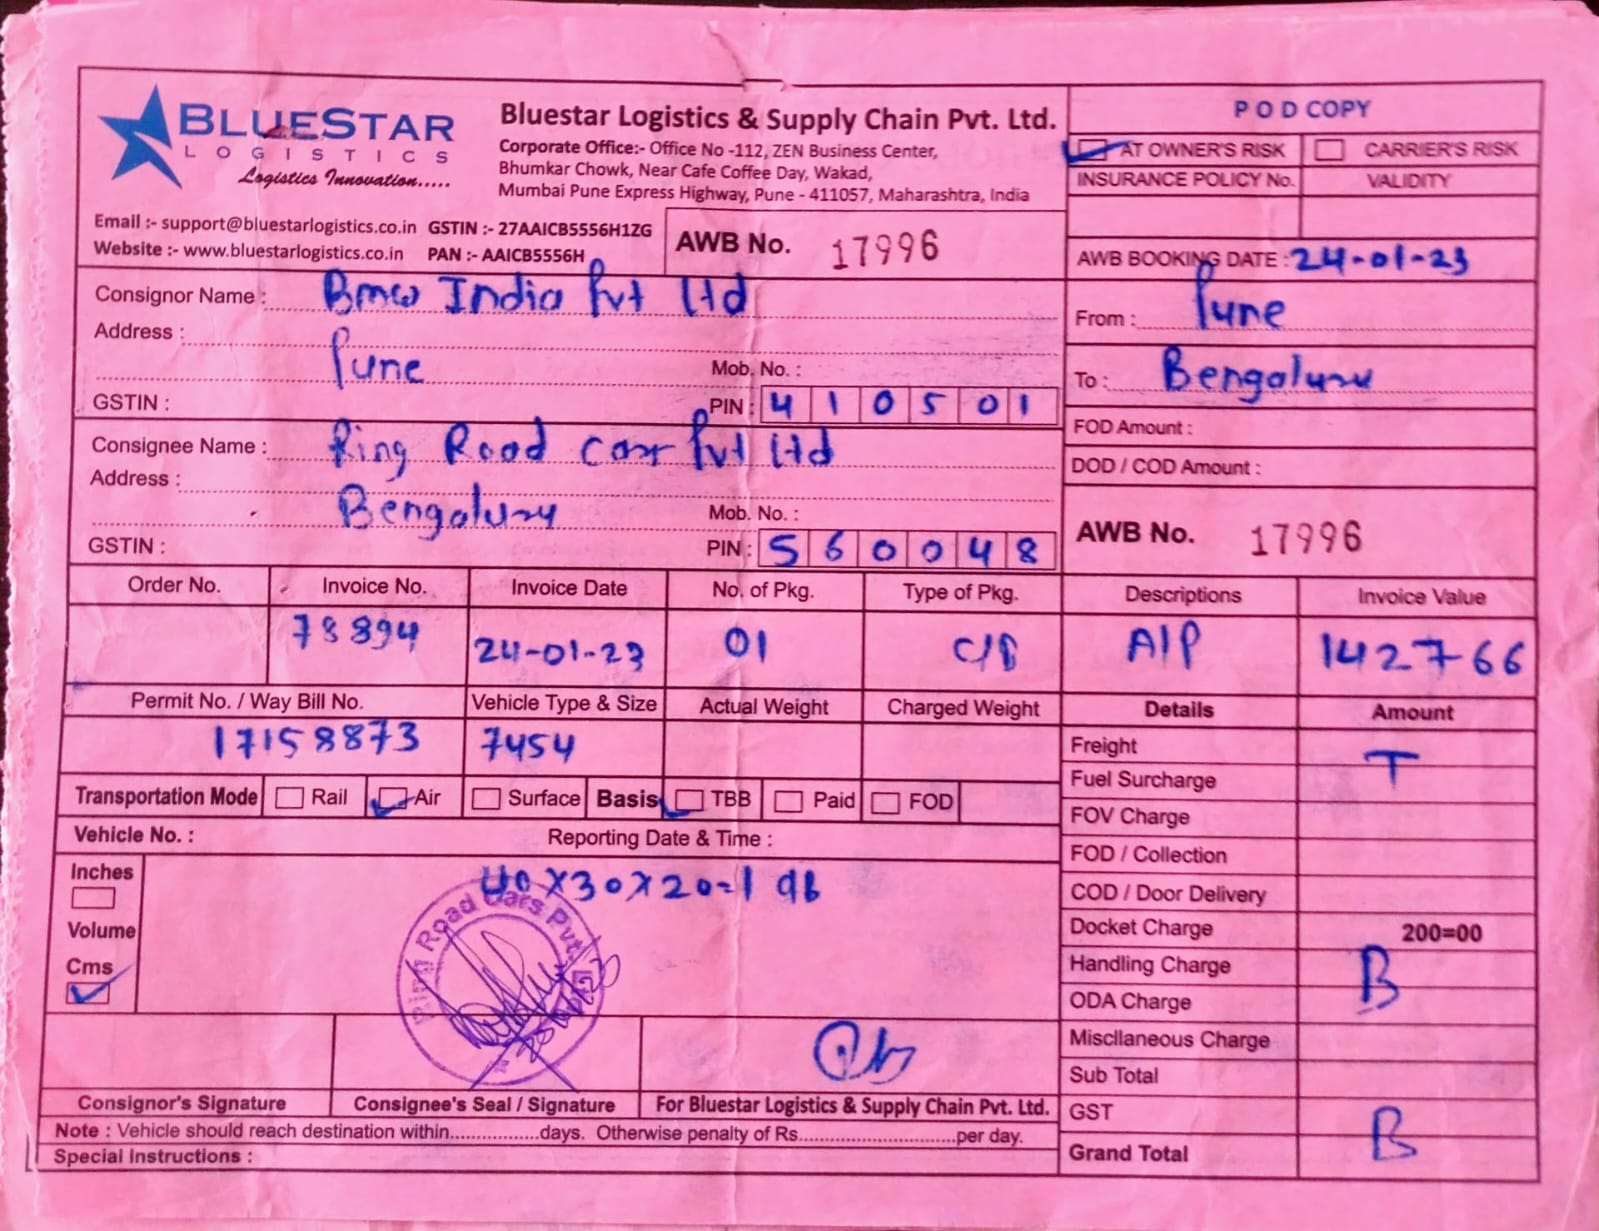 BLUESTAR
LOGISTICS
Logistics Innovation.....
Bluestar Logistics & Supply Chain Pvt. Ltd.
Corporate Office:- Office No -112, ZEN Business Center,
Bhumkar Chowk, Near Cafe Coffee Day, Wakad,
Mumbai Pune Express Highway, Pune - 411057, Maharashtra, India
Email :- support@bluestarlogistics.co.in GSTIN :- 27AAICB5556H1ZG
Website :- www.bluestarlogistics.co.in PAN :- AAICB5556H
AWB No. 17996
POD COPY
AT OWNER'S RISK CARRIER'S RISK
INSURANCE POLICY No. VALIDITY
AWB BOOKING DATE : 24-01-23
Consignor Name : Bmw India Pvt Ltd
Address :
Pune Mob. No. :
GSTIN : PIN : 410501
From : Pune
To : Bengaluru
FOD Amount :
DOD / COD Amount :
Consignee Name : Ring Road Car Pvt Ltd
Address :
Bengaluru Mob. No. :
GSTIN : PIN : 560048
AWB No. 17996
Order No. Invoice No. Invoice Date No. of Pkg. Type of Pkg. Descriptions Invoice Value
78894 24-01-23 01 C/B A/P 142766
Permit No. / Way Bill No. Vehicle Type & Size Actual Weight Charged Weight
17158873 7454
Transportation Mode Rail Air Surface Basis TBB Paid FOD
Vehicle No. : Reporting Date & Time :
Inches
Volume
Cms
40X30X20=1
Ring Road Cars Pvt. Ltd.
Details Amount
Freight T
Fuel Surcharge
FOV Charge
FOD / Collection
COD / Door Delivery
Docket Charge 200=00
Handling Charge B
ODA Charge
Miscllaneous Charge
Sub Total
GST B
Grand Total
Consignor's Signature Consignee's Seal / Signature For Bluestar Logistics & Supply Chain Pvt. Ltd.
Note : Vehicle should reach destination within.................days. Otherwise penalty of Rs.............................per day.
Special Instructions :